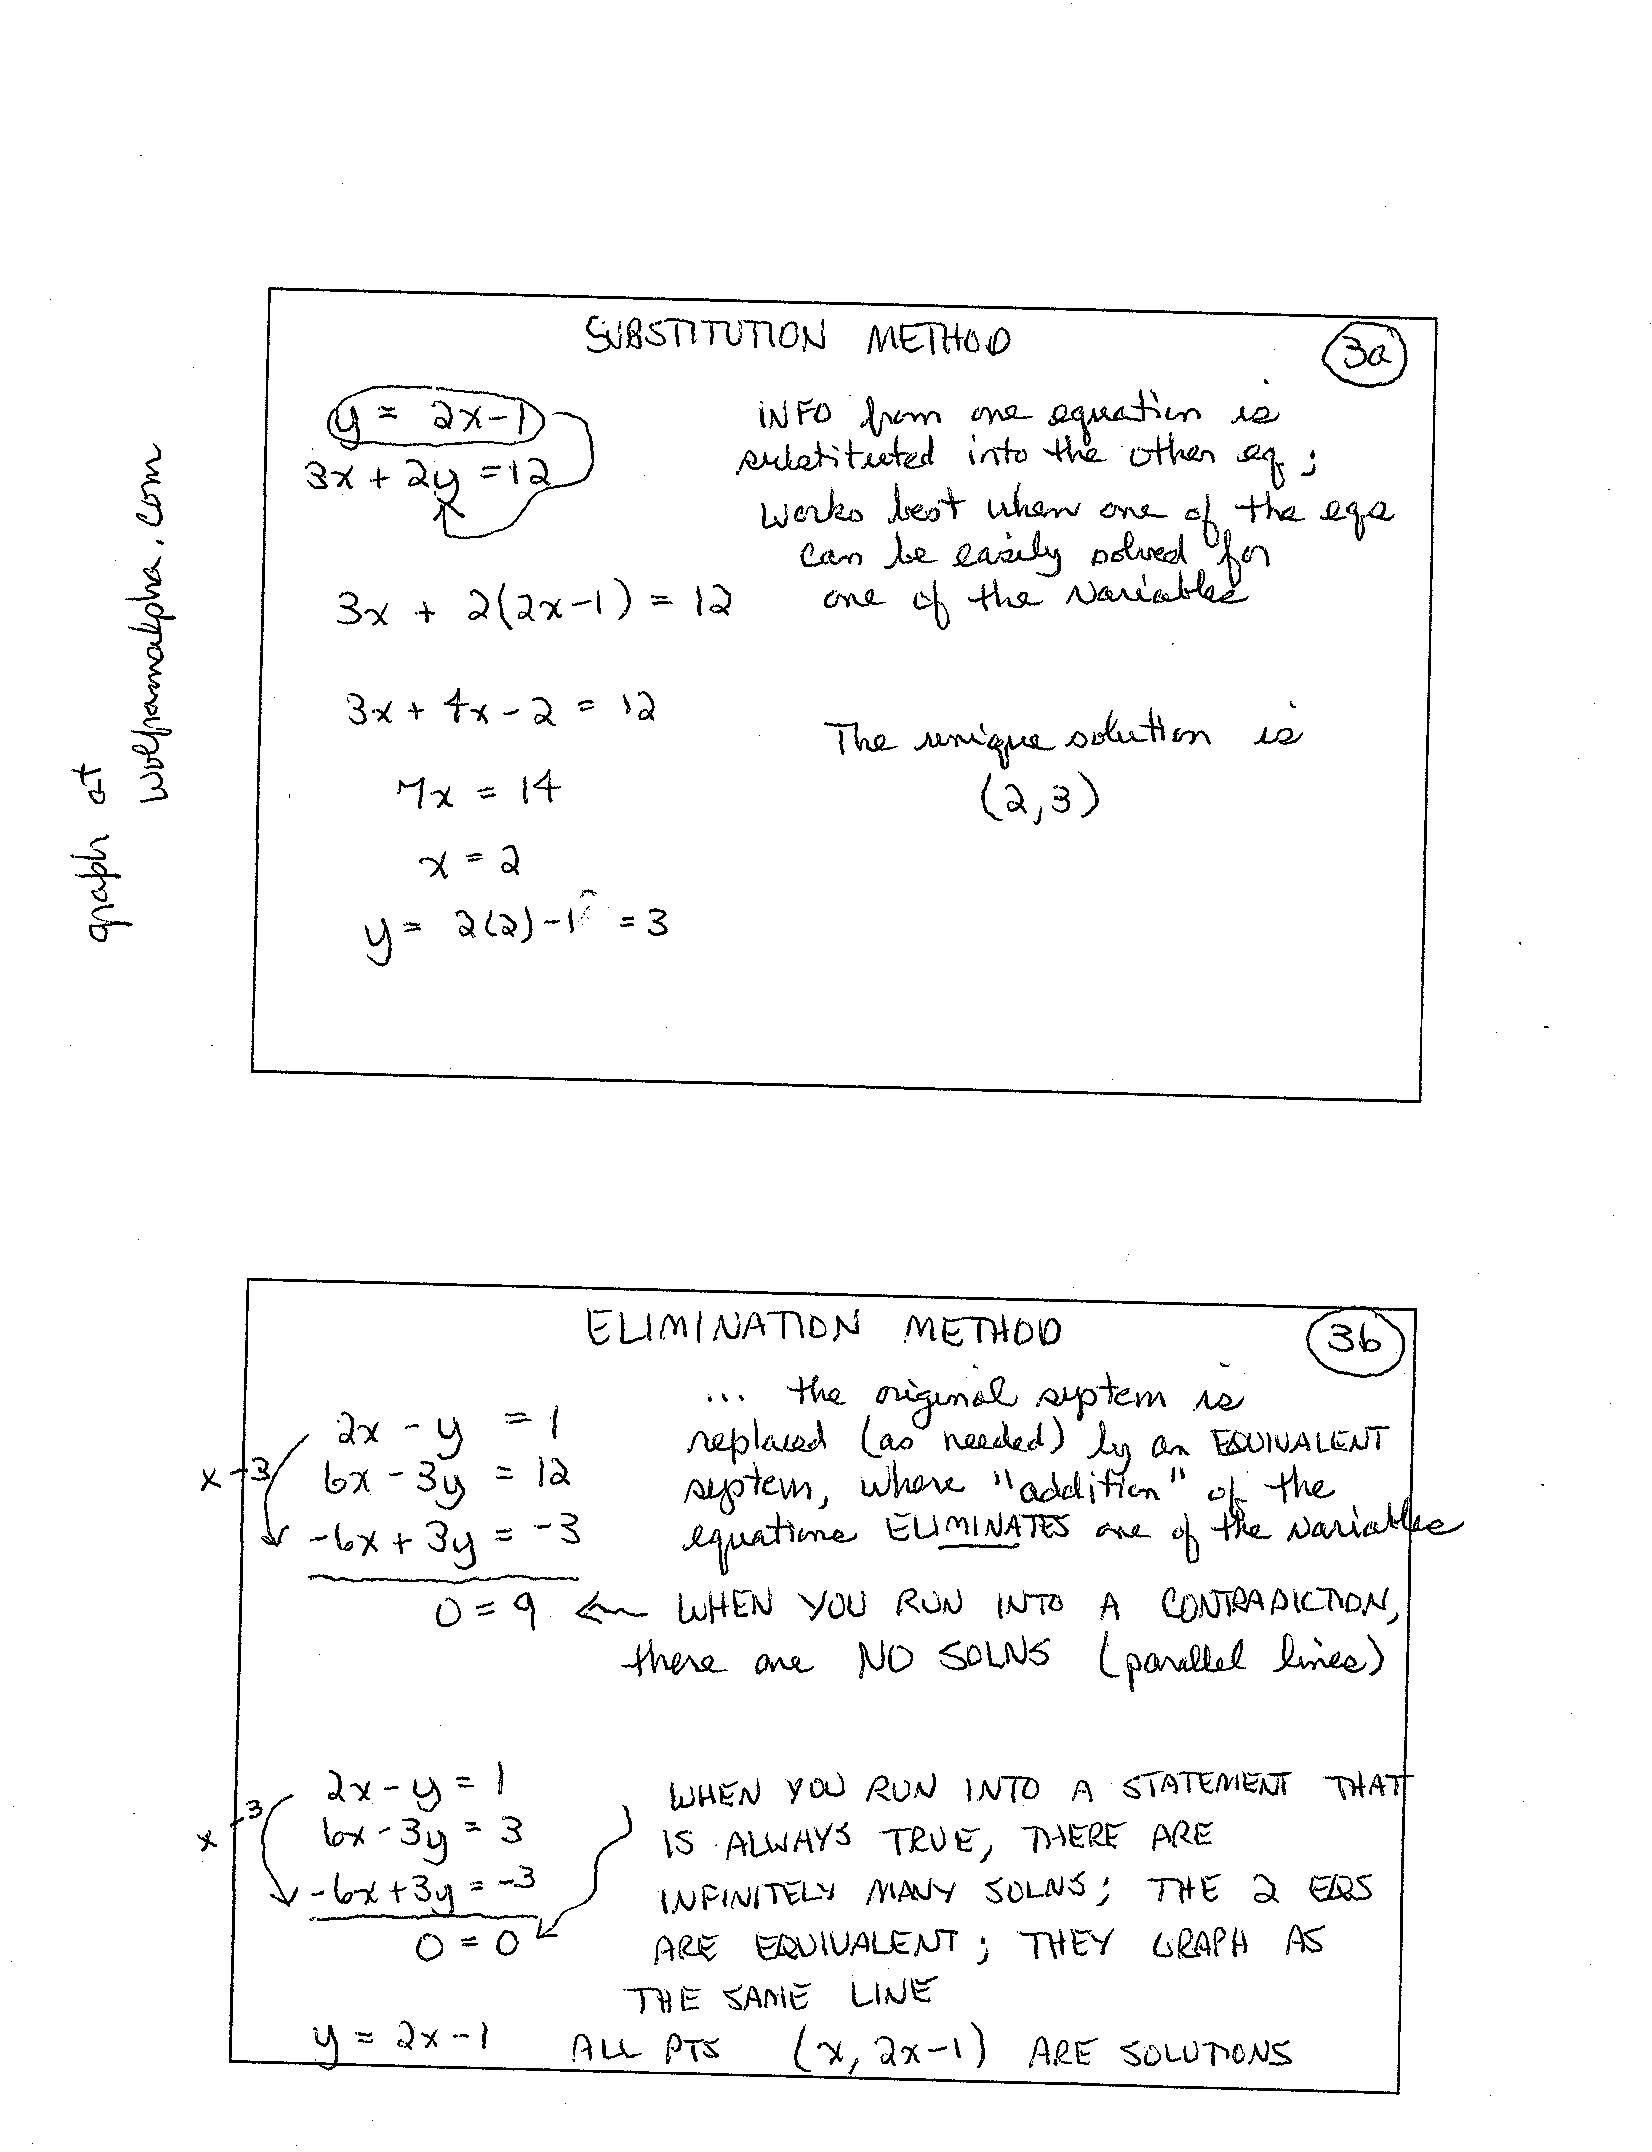 graph at
wolframalpha.com
SUBSTITUTION METHOD
3a
y = 2x-1
3x + 2y = 12
INFO from one equation is
substituted into the other eq;
works best when one of the eqs
can be easily solved for
one of the variables
3x + 2(2x-1) = 12
3x + 4x - 2 = 12
7x = 14
x = 2
y = 2(2)-1 = 3
The unique solution is
(2,3)
ELIMINATION METHOD
3b
2x - y = 1
x -3
6x - 3y = 12
-6x + 3y = -3
0 = 9
... the original system is
replaced (as needed) by an EQUIVALENT
system, where "addition" of the
equations ELIMINATES one of the variables
WHEN YOU RUN INTO A CONTRADICTION,
there are NO SOLNS (parallel lines)
2x - y = 1
x -3
6x - 3y = 3
-6x + 3y = -3
0 = 0
WHEN YOU RUN INTO A STATEMENT THAT
IS ALWAYS TRUE, THERE ARE
INFINITELY MANY SOLNS; THE 2 EQS
ARE EQUIVALENT; THEY GRAPH AS
THE SAME LINE
y = 2x-1 ALL PTS (x, 2x-1) ARE SOLUTIONS